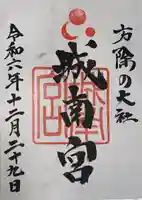 方除の大社
城南宮
令和六年十二月二十九日